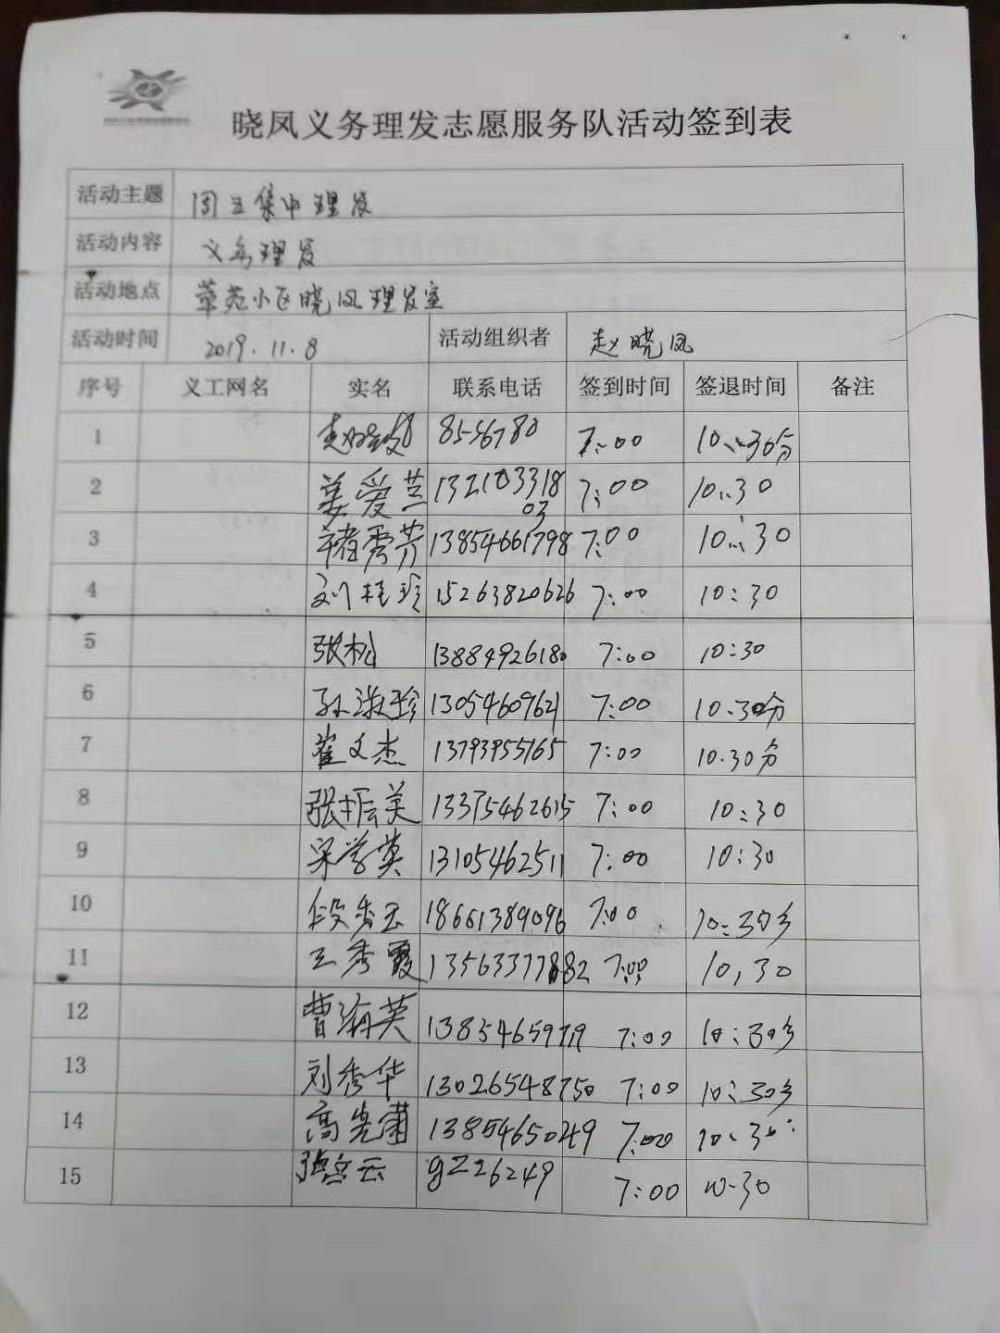 晓凤义务理发志愿服务队活动签到表
活动主题 周五集中理发
活动内容 义务理发
活动地点 苑小区晓凤理发室
活动时间 2019.11.8 活动组织者 赵晓凤
序号 义工网名 实名 联系电话 签到时间 签退时间 备注
1 8556780 7:00 10:30分
2 姜爱兰 13210331803 7:00 10:30
3 褚秀芳 13854661798 7:00 10:30
4 刘桂珍 15263820626 7:00 10:30
5 张松 13884926180 7:00 10:30
6 孙淑珍 13054609621 7:00 10.30分
7 崔文杰 13793955165 7:00 10.30分
8 张振美 13375462615 7:00 10:30
9 宋学英 13105462511 7:00 10:30
10 段秀云 18661389096 7:00 10:30分
11 王秀霞 13563377882 7:00 10,30
12 曹海英 7:00 10:30分
13 刘秀华 13026548750 7:00 10:30分
14 高 13854650249 7:00 10:30
15 张云 7:00 10-30